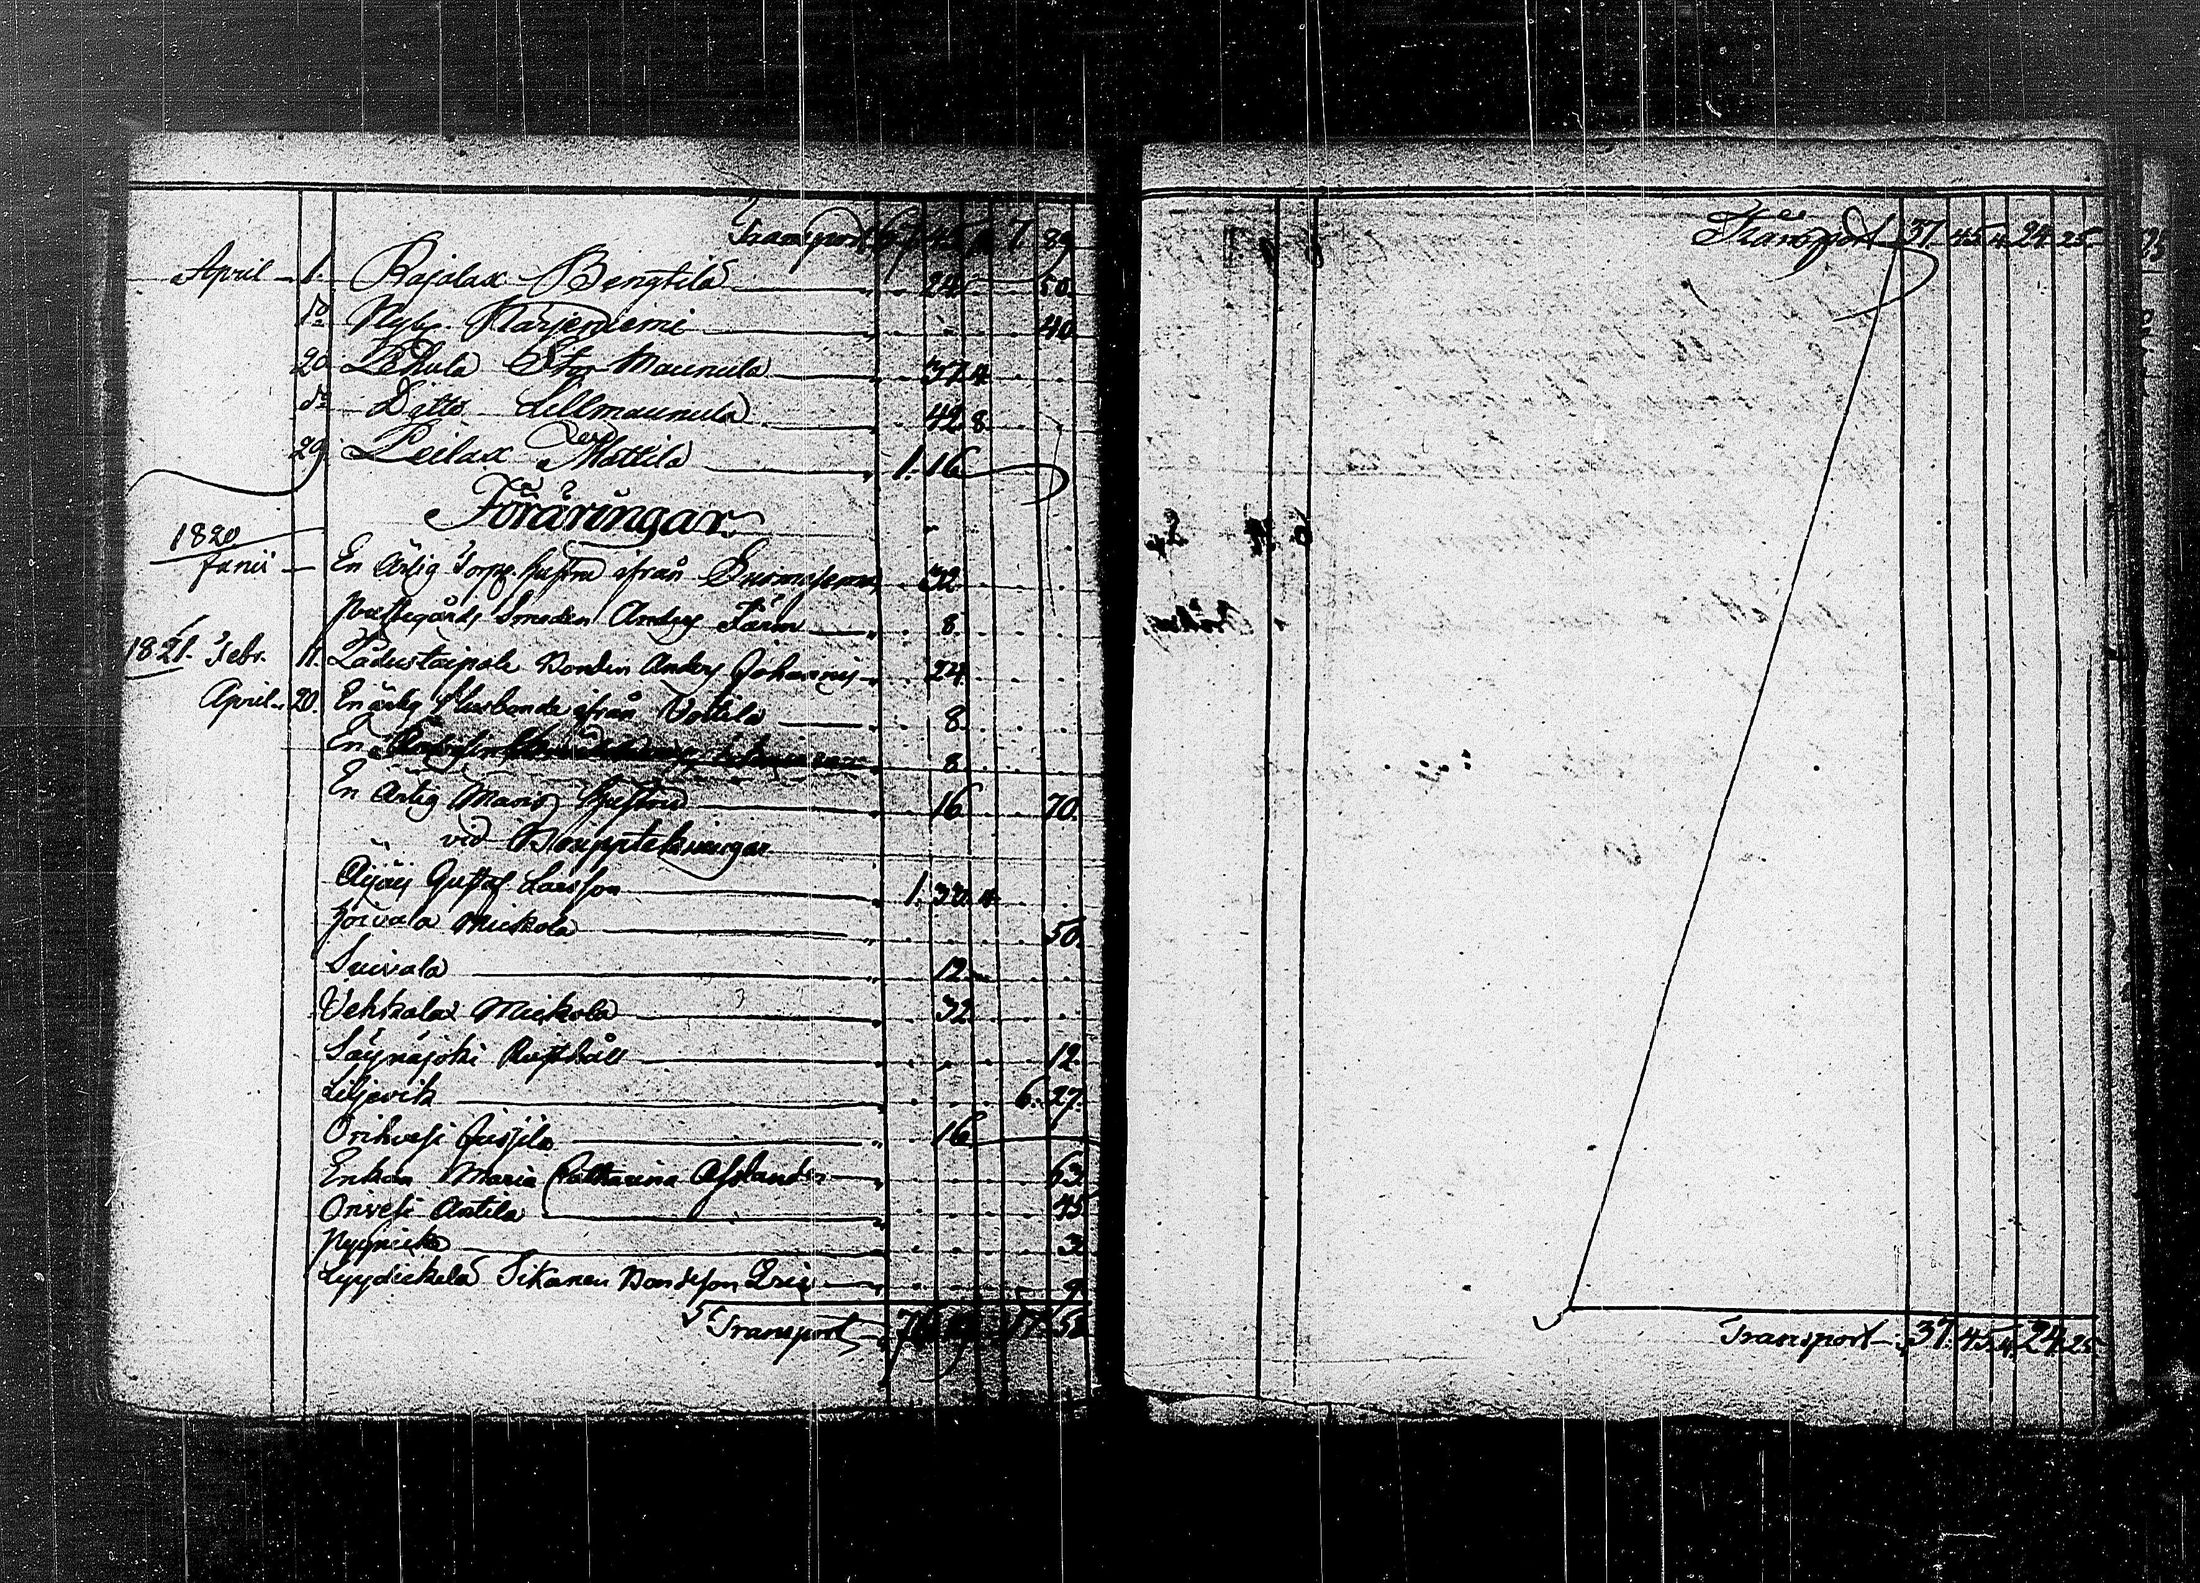 Transport 45 7 89
April 1. Rajalax Bengtila 24 50.
do Nyby Karjeniemi 40.
20 Lehula Stor Maunula 37 4
do Ditto Lillmaunula 42 8
29 Leilax Mattila 1. 16
Föräringar
1820
Junii En Ärlig Torp. Hustru ifrån 32
Smeden Anders Färm 8.
1821. Febr. 11. Ladustaipale Bonden Anders Johannis 24
April 20. En ärlig Husbonde ifrån Voitila 8
En 8
En Ärlig Mans Hustru 16 70.
vid Bouppteckningar
Äijäis Gustaf Larsson 1. 33. 4
Joivala Mickola 50.
Suivala 12.
Vehkalax Mickola 32
Säynäjoki Rusthåll 12.
Liljevik 6. 27.
Orihvesi Jussila 16
Enkan Maria Catharina 63
Orivesi Antila 45
3
Lyydickelä Sikanen Bondeson Eric 9
Transport 76 17 58
Transport 37. 45. 4. 24. 25.
Transport 37. 45. 4. 24. 25.